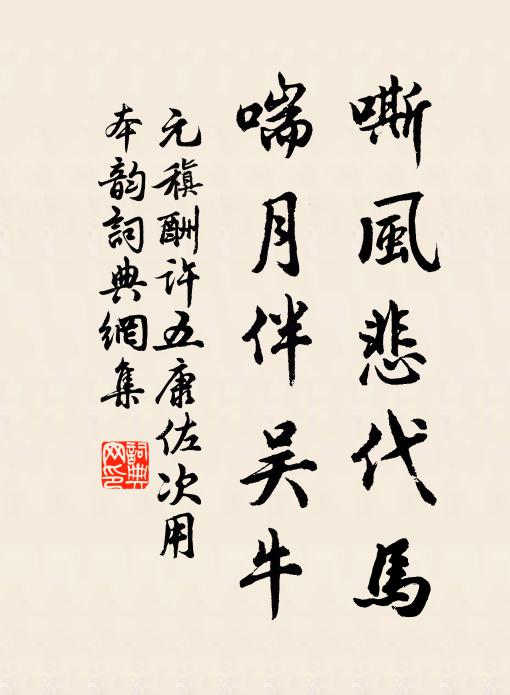 嘶風悲代馬
喘月伴吴牛
元稹酬许五康佐次用
本韵詞典網集
詞典網印